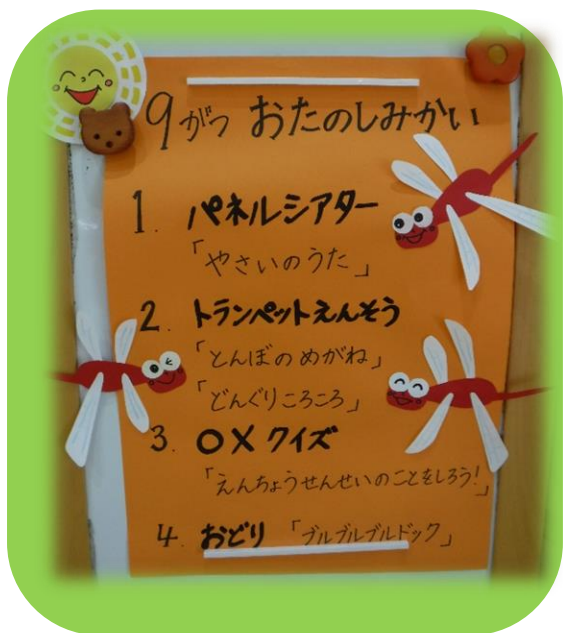 9がつ おたのしみかい
1. パネルシアター
「やさいのうた」
2. トランペットえんそう
「とんぼのめがね」
「どんぐりころころ」
3. ○×クイズ
「えんちょうせんせいのことをしろう!」
4. おどり 「ブルブルブルドック」